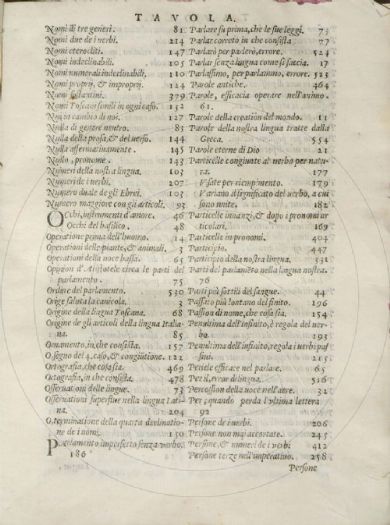 TAVOLA.
Nomi di tre generi. 81
Nomi due de i verbi. 214
Nomi eterocliti. 147
Nomi indeclinabili. 105
Nomi numerali indeclinabili. 110
Nomi proprij, & improprij. 124
Nomi sostantini. 379
Nomi Toscani formali in ogni caso. 152
Non in cambio di noi. 127
Nulla di genere neutro. 83
Nulla della prosa, & del verso. 144
Nulla affermativamente. 145
Nullo, pronome. 143
Numeri della nostra lingua. 103
Numeri de i verbi. 207
Numero duale degli Ebrei. 103
Numero maggiore con gli articoli. 93
Occhi, instrumenti d'amore. 46
Occhi del basilico. 48
Operatione prima dell'huomo. 14
Operationi delle piante, & animali. 3
Operationi della voce bassa. 65
Oppinion d'Aristotele circa le parti del
parlamento. 75
Ordine del parlamento. 530
Orige saluta la canicola. 3
Origine della lingua Toscana. 68
Origine de gli articoli della lingua Italia-
na. 85
Ornamento, in che consista. 157
O segno del 4. caso, & congiuntione. 122
Ortografia, che cosa sia. 469
Ortografia, in che consista. 478
Osservationi delle lingue. 73
Osservationi superflue nella lingua Lati-
na. 204
O, terminatione della quarta declinatio-
ne de i nomi. 130
Parlamento imperfetto senza verbo.
186
Parlare su prima, che le sue leggi. 73
Parlar corretto in che consista. 77
Parlarò per parlerò, errore. 524
Parlar senza lingua come si faccia. 17
Parlassimo, per parlammo, errore. 525
Parole antiche. 464
Parole, efficacia operare nell'animo.
61.
Parole della creation del mondo. 11
Parole della nostra lingua tratte dalla
Greca. 554
Parole eterne di Dio 21
Particelle congiunte al verbo per natu-
ra. 177
Usate per riempimento. 179
Variano il significato del verbo, a cui
sono unite. 182
Particelle innanzi, & dopo i pronomi ar
ticolari. 169
Particelle in pronomi. 404
Participio. 447
Participio della nostra lingua. 331
Parti del parlamento nella lingua nostra.
76
Parti più sottili del sangue. 44
Passato più lontano del finito. 196
Passion di nome, che cosa sia. 154
Penultima dell'infinito, è regola del ver-
bo. 193
Penultima dell'infinito, regola i verbi pas
sivi. 215
Pericle efficace nel parlare. 65
Per il, error di lingua. 516
Percossion della voce nell'aere. 32
Per, quando perda l'ultima lettera
92
Persone de i verbi. 206
Persone non mai accettate. 245
Persone, & numeri de i verbi. 412
Persone terze nell'imperativo. 258
Persone